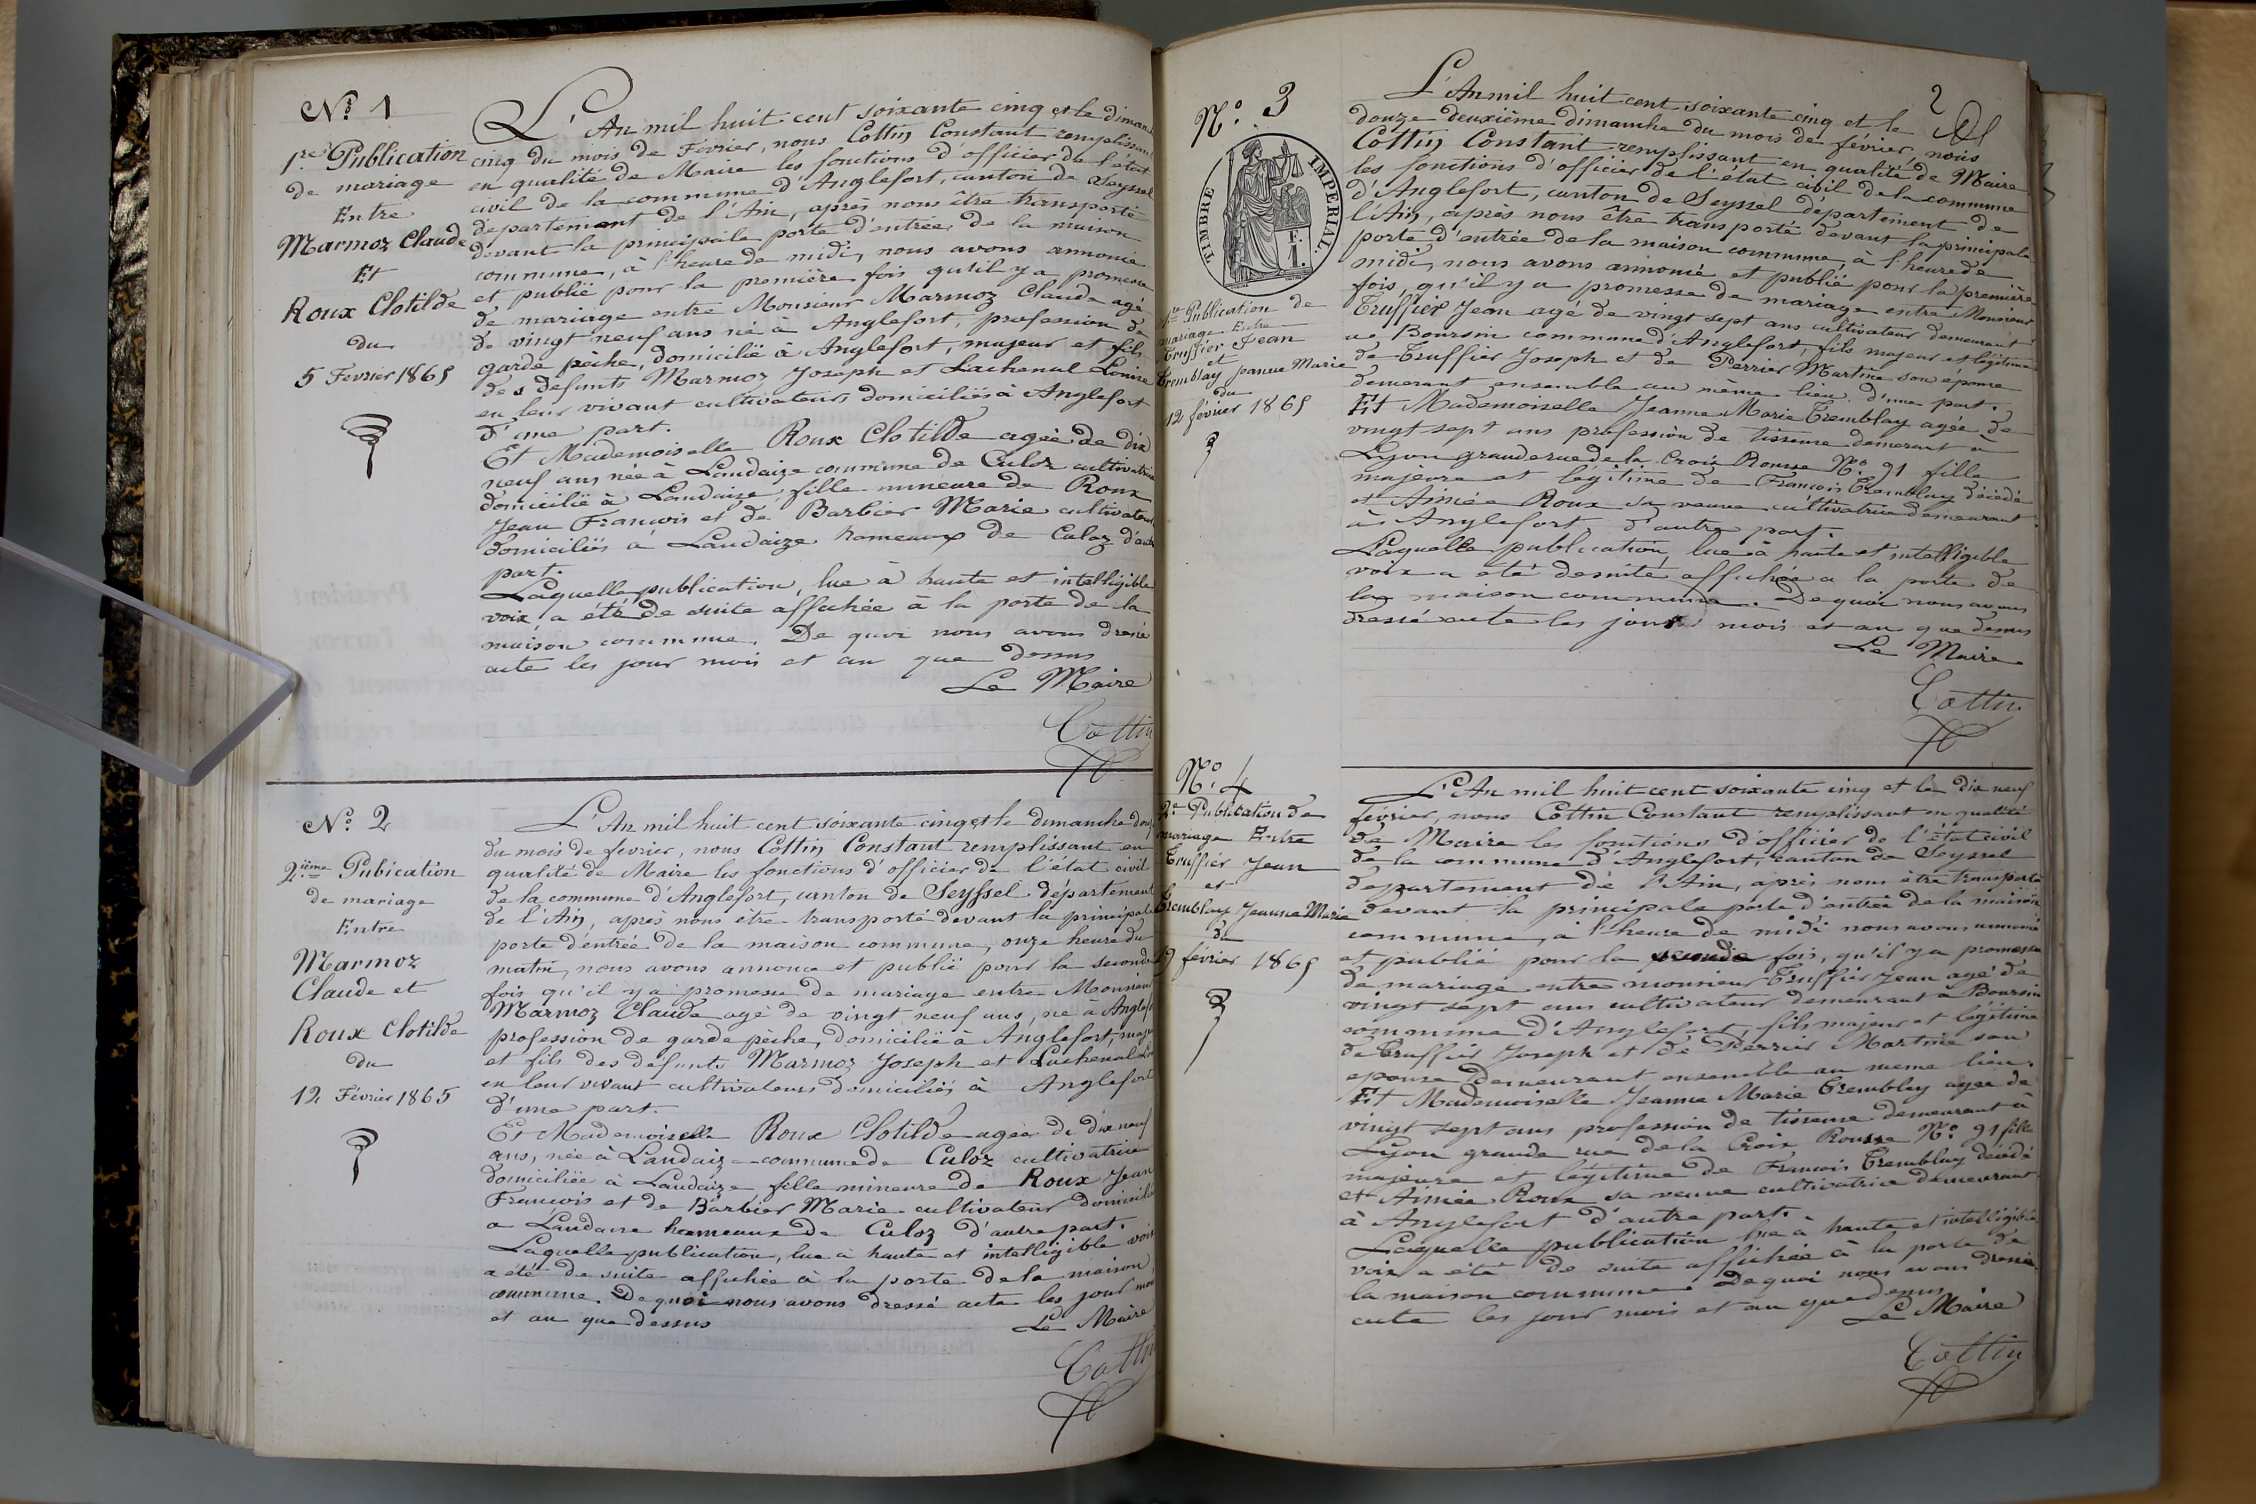 Nº 1
1re Publication
de mariage
Entre
Marmoz Claude
Et
Roux Clotilde
du
5 Fevrier 1865
L'An mil huit cent soixante cinq et le diman
cinq du mois de Fevrier, nous Cottin Constant remplissant
en qualité de Maire les fonctions d'officier de l'état
civil de la commune d'Anglefort, canton de Seyssel
departement de l'Ain, après nous être transporté
devant la principale porte d'entrée, de la maison
commune, à l'heure de midi, nous avons annonie
et publié pour la première fois qu'il y a promesse
de mariage entre Monsieur Marmoz Claude agé
de vingt neuf ans né à Anglefort, profession de
garde pêche, domicilié à Anglefort, majeur et fils
des defunts Marmoz Joseph et Lachenal Louise
en leur vivant cultivateurs domiciliés à Anglefort
d'une part.
Et Mademoiselle Roux Clotilde agée de dix
neuf ans née à Landaize commune de Culoz cultivatrice
domicilié à Landaize, fille mineure de Roux
Jean Francois et de Barbier Marie cultivateurs
domiciliés à Landaize hameaux de Culoz d'autre
part.
Laquelle publication, lue à haute et intelligible
voix a été de suite affichée à la porte de la
maison commune. De quoi nous avons dressé
acte les jour mois et an que dessus
Le Maire
Cottin
Nº 2
2ième Pubication
de mariage
Entre
Marmoz
Claude et
Roux Clotilde
du
12 Février 1865
L'An mil huit cent soixante cinq et le dimanche douz
du mois de fevrier, nous Cottin Constant remplissant en
qualité de Maire les fonctions d'officier de l'état civil
de la commune d'Anglefort, canton de Seyssel département
de l'Ain, après nous être transporté devant la principale
porte d'entrée de la maison commune, onze heure du
matin, nous avons annonce et publié pour la seconde
fois qu'il y a promesse de mariage entre Monsieur
Marmoz Claude agé de vingt neuf ans, né à Anglefo
profession de garde pêche, domicilié à Anglefort, maj
et fils des defunts Marmoz Joseph et Lachenal
en leur vivant cultivateurs domiciliés à Anglefort
d'une part.
Et Mademoiselle Roux Clotilde agée de dix neuf
ans, née à Landaiz commune de Culoz cultivatrice
domiciliée à Landaize fille mineure de Roux Jean
Francois et de Barbier Marie cultivateur domicilié
a Landaize hameaux de Culoz d'autre part.
Laquelle publication, lue à haute et intelligible voix
a été de suite affichée à la porte de la maison
commune. De quoi nous avons dressé acte les jour mois
et an que dessus
Le Maire
Cottin
2
Nº 3
TIMBRE IMPERIAL.
F.
1.
1re Publication de
mariage Entre
Truffier Jean
et
Tremblay Jeanne Marie
du
12 février 1865
L'An mil huit cent soixante cinq et le
douze deuxième dimanche du mois de février, nous
Cottin Constant remplissant en qualité de Maire
les fonctions d'officier de l'état civil de la commune
d'Anglefort, canton de Seyssel département de
l'Ain, après nous être transporté devant la principale
porte d'entrée de la maison commune, à l'heure de
midi, nous avons annoncé et publié pour la première
fois, qu'il y a promesse de mariage entre Monsieur
Truffier Jean agé de vingt sept ans cultivateur demeurant
a Boursin commune d'Anglefort, fils majeur et légitime
de Truffier Joseph et de Perrier Martine son épouse
demerant ensemble au même lieu d'une part.
Et Mademoiselle Jeanne Marie Tremblay agée de
vingt sept ans profession de tisseuse demerant à
Lyon grande rue de la Croix Rousse Nº 91 fille
majeure et légitime de Francois Tremblay décédé
et Aimée Roux sa veuve cultivatrice demeurant
à Anglefort, d'autre part.
Laquelle publication, lue à haute et intelligible
voix a été desuite affichée a la porte de
la maison commune. De quoi nous avons
dressé acte les jour mois et an que dessus
Le Maire
Cottin
Nº 4
2e Publication de
mariage Entre
Truffier Jean
et
Tremblay Jeanne Marie
du
19 février 1865
L'An mil huit cent soixante cinq et le dix neuf
février, nous Cottin Constant remplissant en qualité
de Maire les fonctions d'officier de l'état civil
de la commune d'Anglefort, canton de Seyssel
departement de l'Ain, après nous être transporté
devant la principale porte d'entrée de la maison
commune, à l'heure de midi nous avons annoncé
et publié pour la seconde fois, qu'il y a promesse
de mariage entre monsieur Truffier Jean agé de
vingt sept ans cultivateur demeurant à Boursin
commune d'Anglefort, fils majeur et légitime
de Truffier Joseph et de Perrier Martine son
epouse demeurant ensemble au meme lieu.
Et Mademoiselle Jeanne Marie Tremblay agée de
vingt sept ans profession de tisseuse demeurant à
Lyon grande rue de la Croix Rousse Nº 91 fille
majeure et légitime de Francois Tremblay décédé
et Aimée Roux sa veuve cultivatrice demeurant
à Anglefort d'autre part.
Laquelle publication lue à haute et intelligible
voix a été de suite affichée à la porte de
la maison commune. De quoi nous avons dressé
acte les jour mois et an que dessus
Le Maire
Cottin